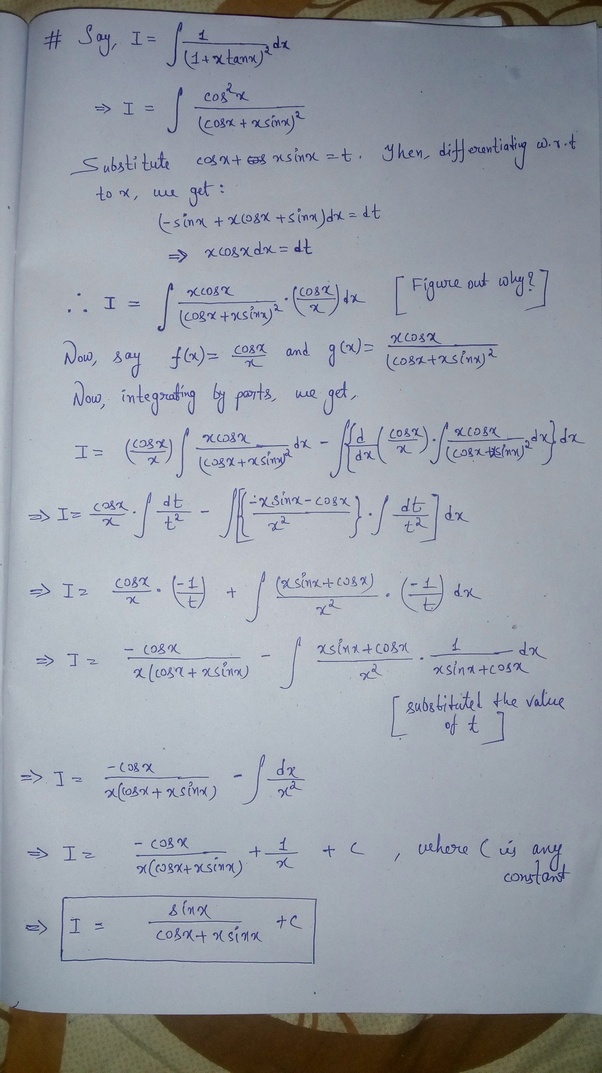 # Say, I = ∫ 1/(1+xtanx)² dx
⇒ I = ∫ cos²x/(cosx + xsinx)²
Substitute cosx + xsinx = t. Then, differentiating w.r.t
to x, we get:
(-sinx + xcosx + sinx)dx = dt
⇒ xcosxdx = dt
∴ I = ∫ xcosx/(cosx + xsinx)² · (cosx/x) dx [Figure out why?]
Now, say f(x) = cosx/x and g(x) = xcosx/(cosx + xsinx)²
Now, integrating by parts, we get,
I = (cosx/x) ∫ xcosx/(cosx + xsinx)² dx - ∫{d/dx (cosx/x) · ∫ xcosx/(cosx + xsinx)² dx} dx
⇒ I = cosx/x · ∫ dt/t² - ∫[{-xsinx - cosx/x²} · ∫ dt/t²] dx
⇒ I = cosx/x · (-1/t) + ∫ (xsinx + cosx)/x² · (-1/t) dx
⇒ I = -cosx/x(cosx + xsinx) - ∫ xsinx + cosx/x² · 1/xsinx + cosx dx
[substituted the value
of t]
⇒ I = -cosx/x(cosx + xsinx) - ∫ dx/x²
⇒ I = -cosx/x(cosx + xsinx) + 1/x + C , where C is any
constant
⇒ I = sinx/cosx + xsinx + C